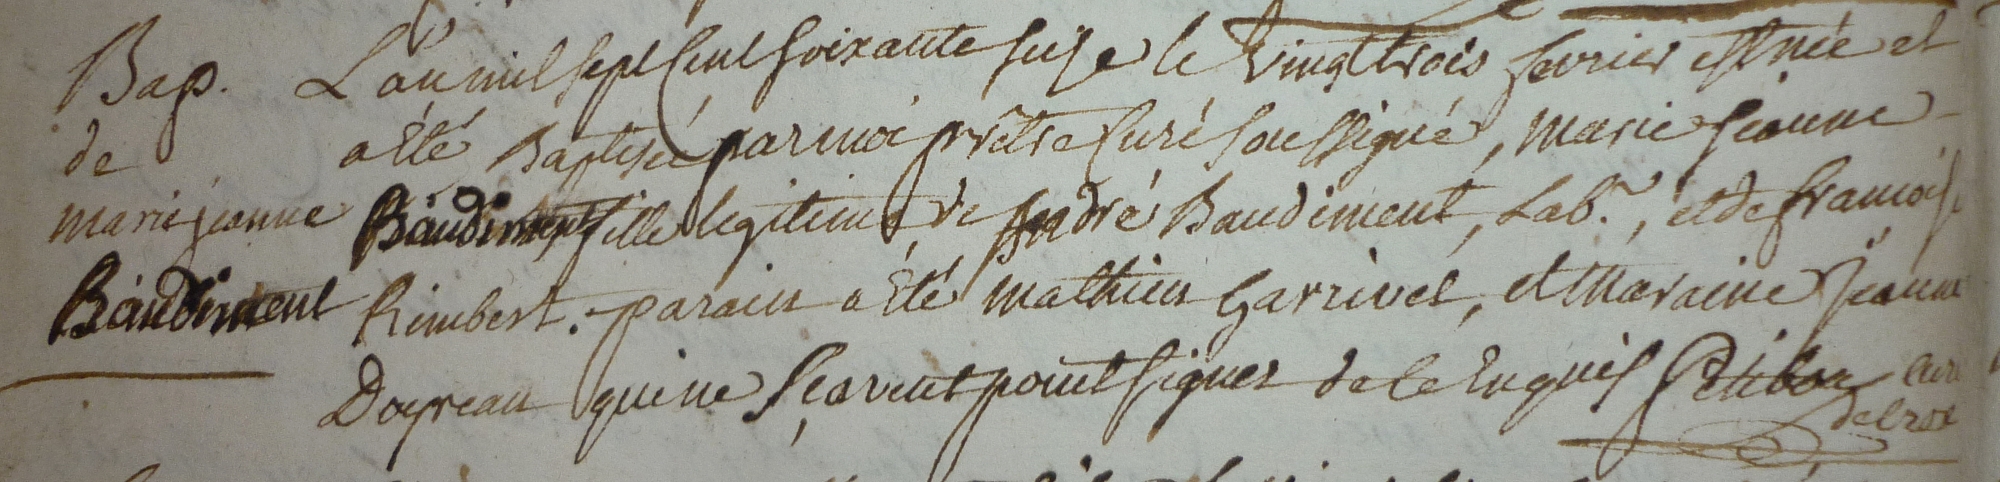 Bap.
de
marie jeanne
Baudiment
L'an mil sept Cent soixante seize le vingt trois fevrier est née et
a été Baptisée par moi prêtre Curé soussigné, marie jeanne
Baudiment fille legitime de André Baudiment, Lab.r, et de françoise
Rimbert. parain a été mathieu Garrivet, et maraine jeanne
Dapreau qui ne sçavent point signer de ce enquis Petibon curé